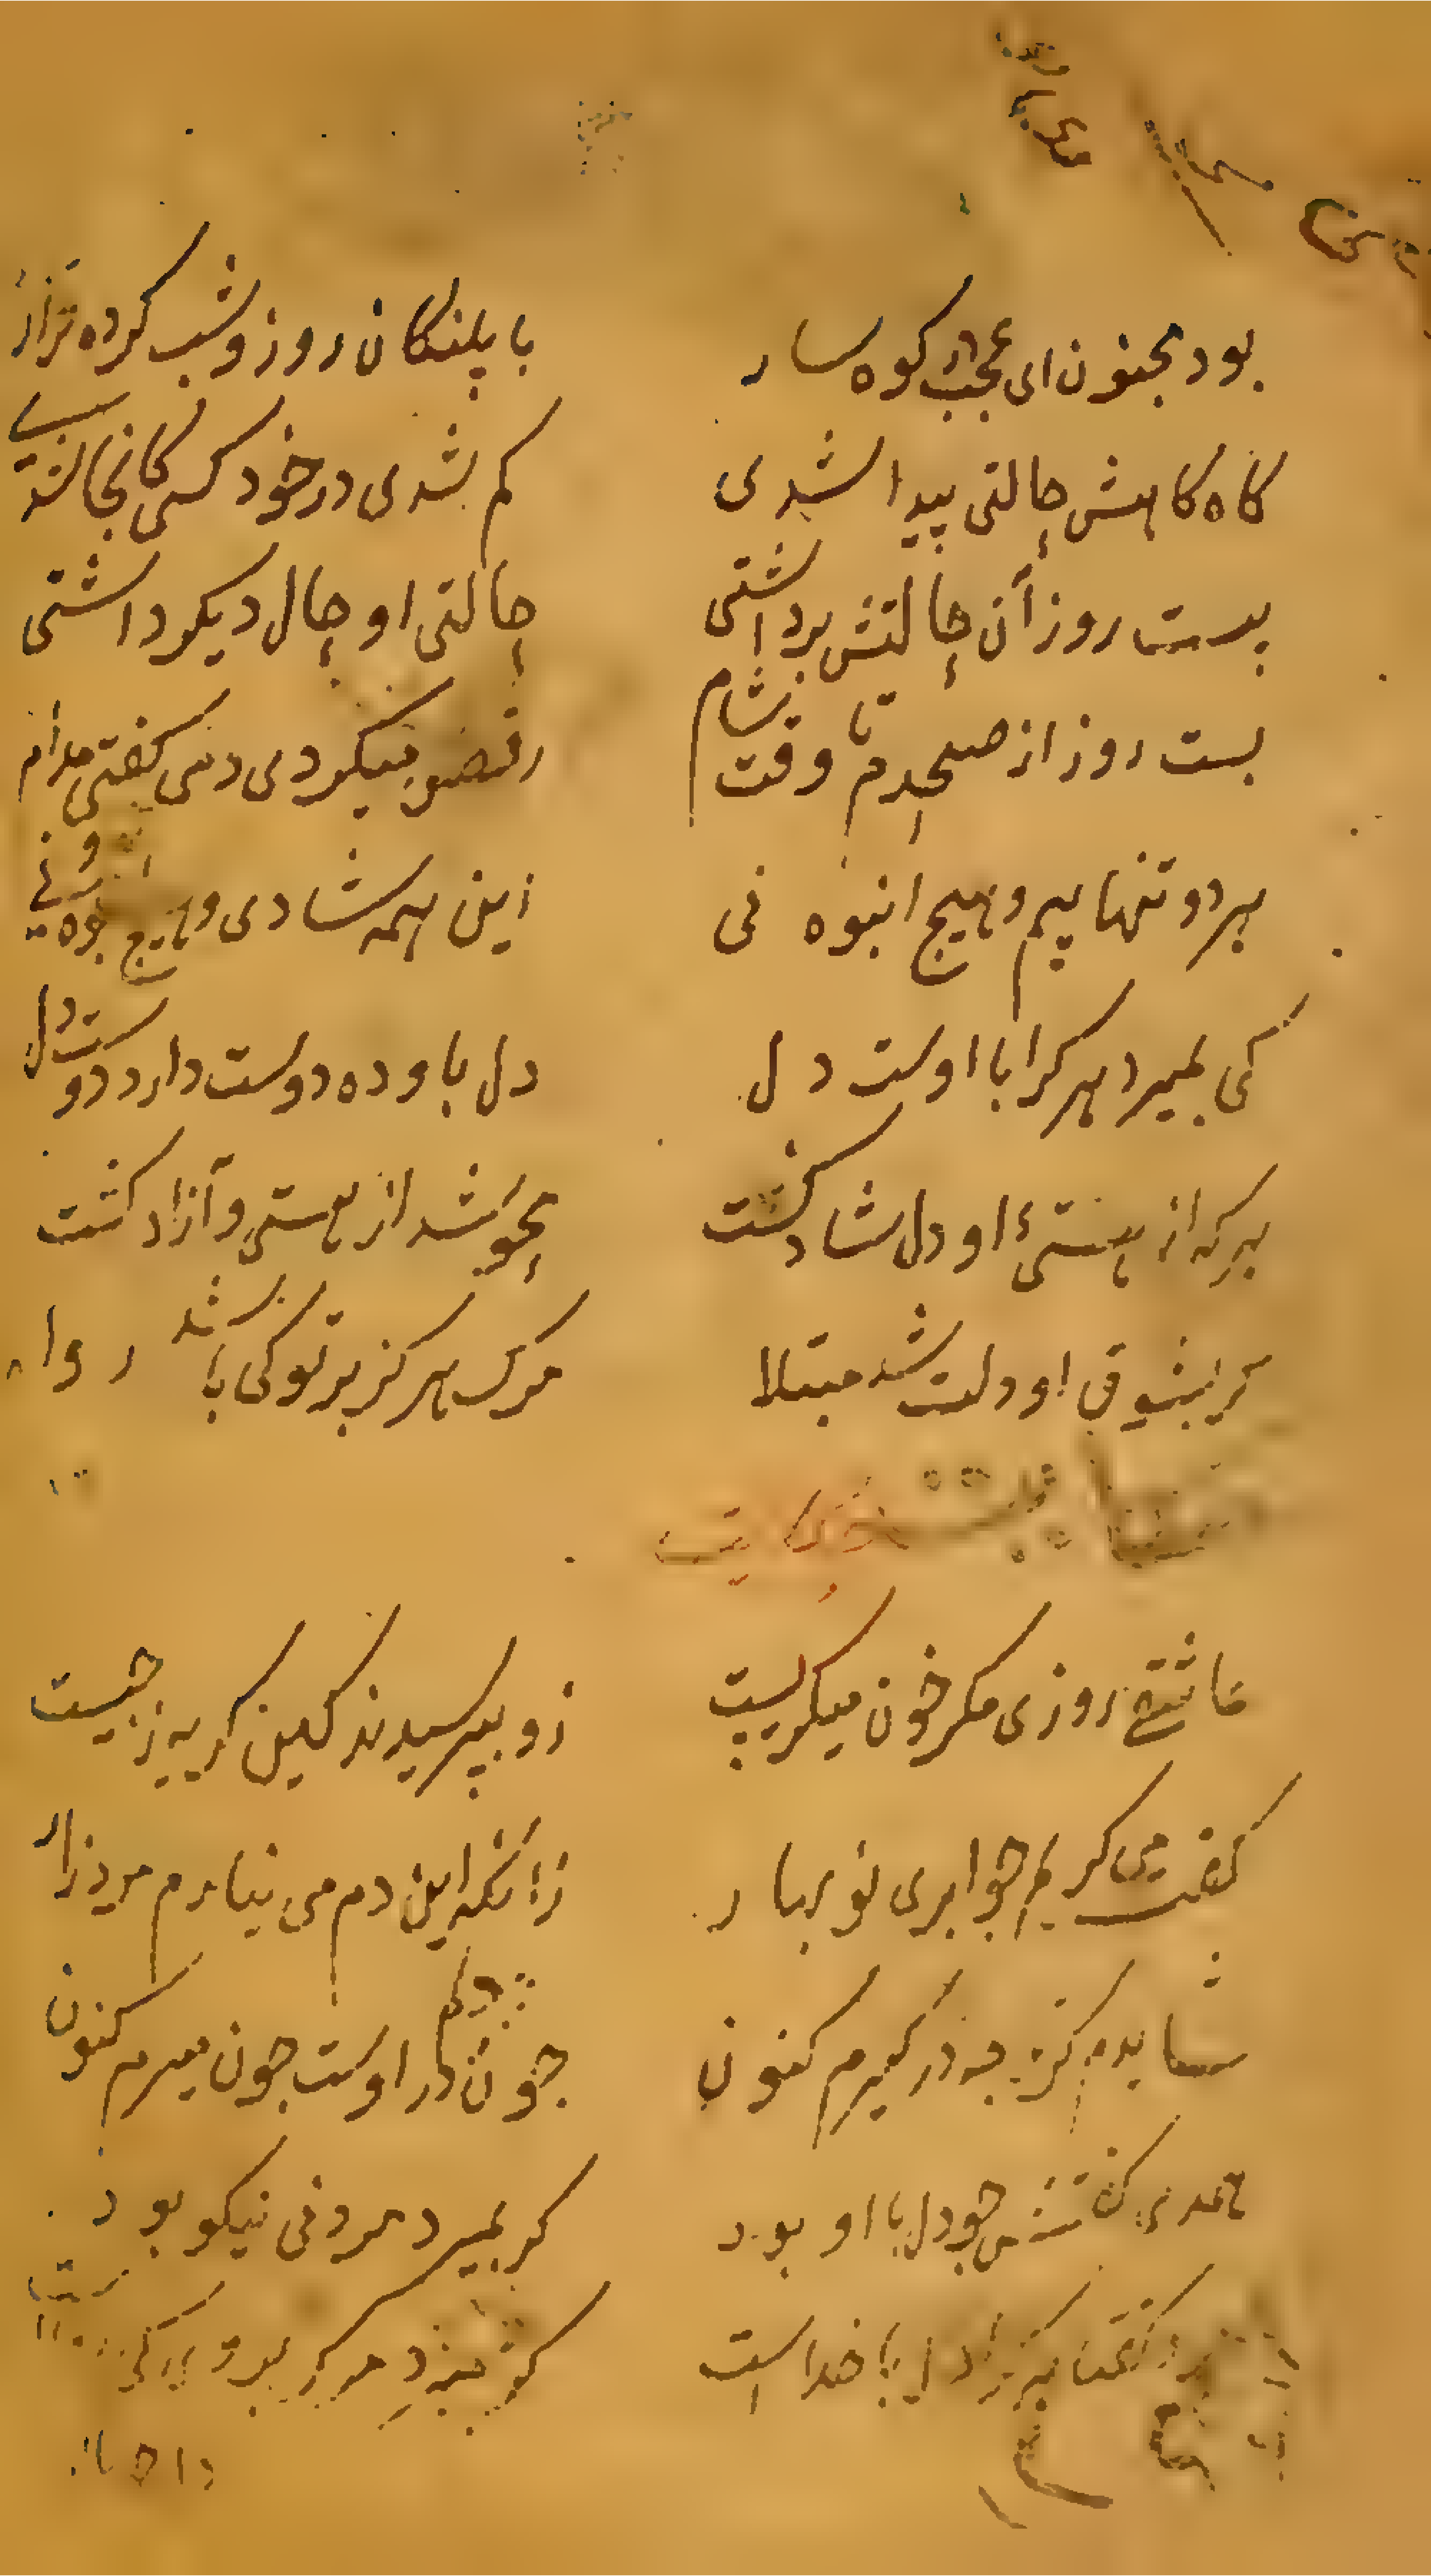 بود مجنون ای عجب در کوه سار با پلنکان روز و شب کرده قرار
کاه کاهش حالتی پیدا شدی کم شدی در خود کسی کانجا شدی
بیست روز آن حالتش برداشتی حالتی او حال دیکر داشتی
بیست روز از صبحدم تا وقت شام رقص میکردی و می کفتی مدام
هر دو تنها ییم و هیچ انبوه نی این همه شادی و هیچ اندوه نی
کی بمیرد هر کرا با اوست دل دل باو ده دوست دارد دوست دل
هر که از هستیٔ او دل شاد کشت محو شد از هستی و آزاد کشت
کر بشوق او دلت شد مبتلا مرک هرکز بر تو کی باشد روا
حکایت
عاشقی روزی مکر خون میکریست زو بپرسیدند کین کریه ز جیست
کفت می کریم جو ابری نوبهار زانکه این دم می نیارم مرد زار
شایدم کر جه در کیرم کنون جون دلم در اوست جون میرم کنون
همدمی کفتش جو دل با او بود کر بمیرد مردنی نیکو بود
کفت دل با خداست